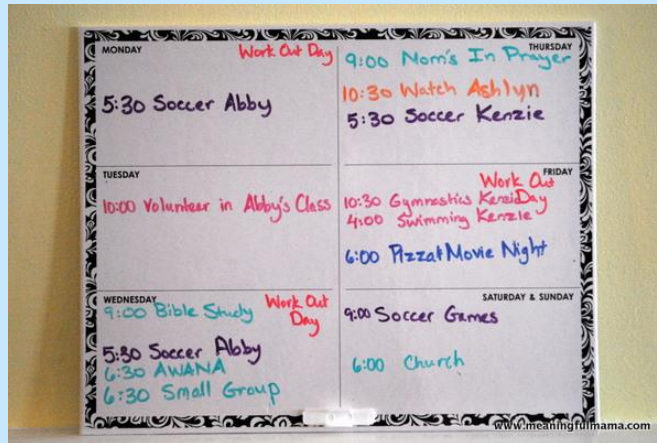 MONDAY
Work Out Day
5:30 Soccer Abby
TUESDAY
10:00 Volunteer in Abby's Class
WEDNESDAY
9:00 Bible Study
Work Out
Day
5:30 Soccer Abby
6:30 AWANA
6:30 Small Group
THURSDAY
9:00 Mom's In Prayer
10:30 Watch Ashlyn
5:30 Soccer Kenzie
FRIDAY
Work Out
Day
10:30 Gymnastics Kenzi
4:00 Swimming Kenzie
6:00 Pizza & Movie Night
SATURDAY & SUNDAY
9:00 Soccer Games
6:00 Church
www.meaningfulmama.com